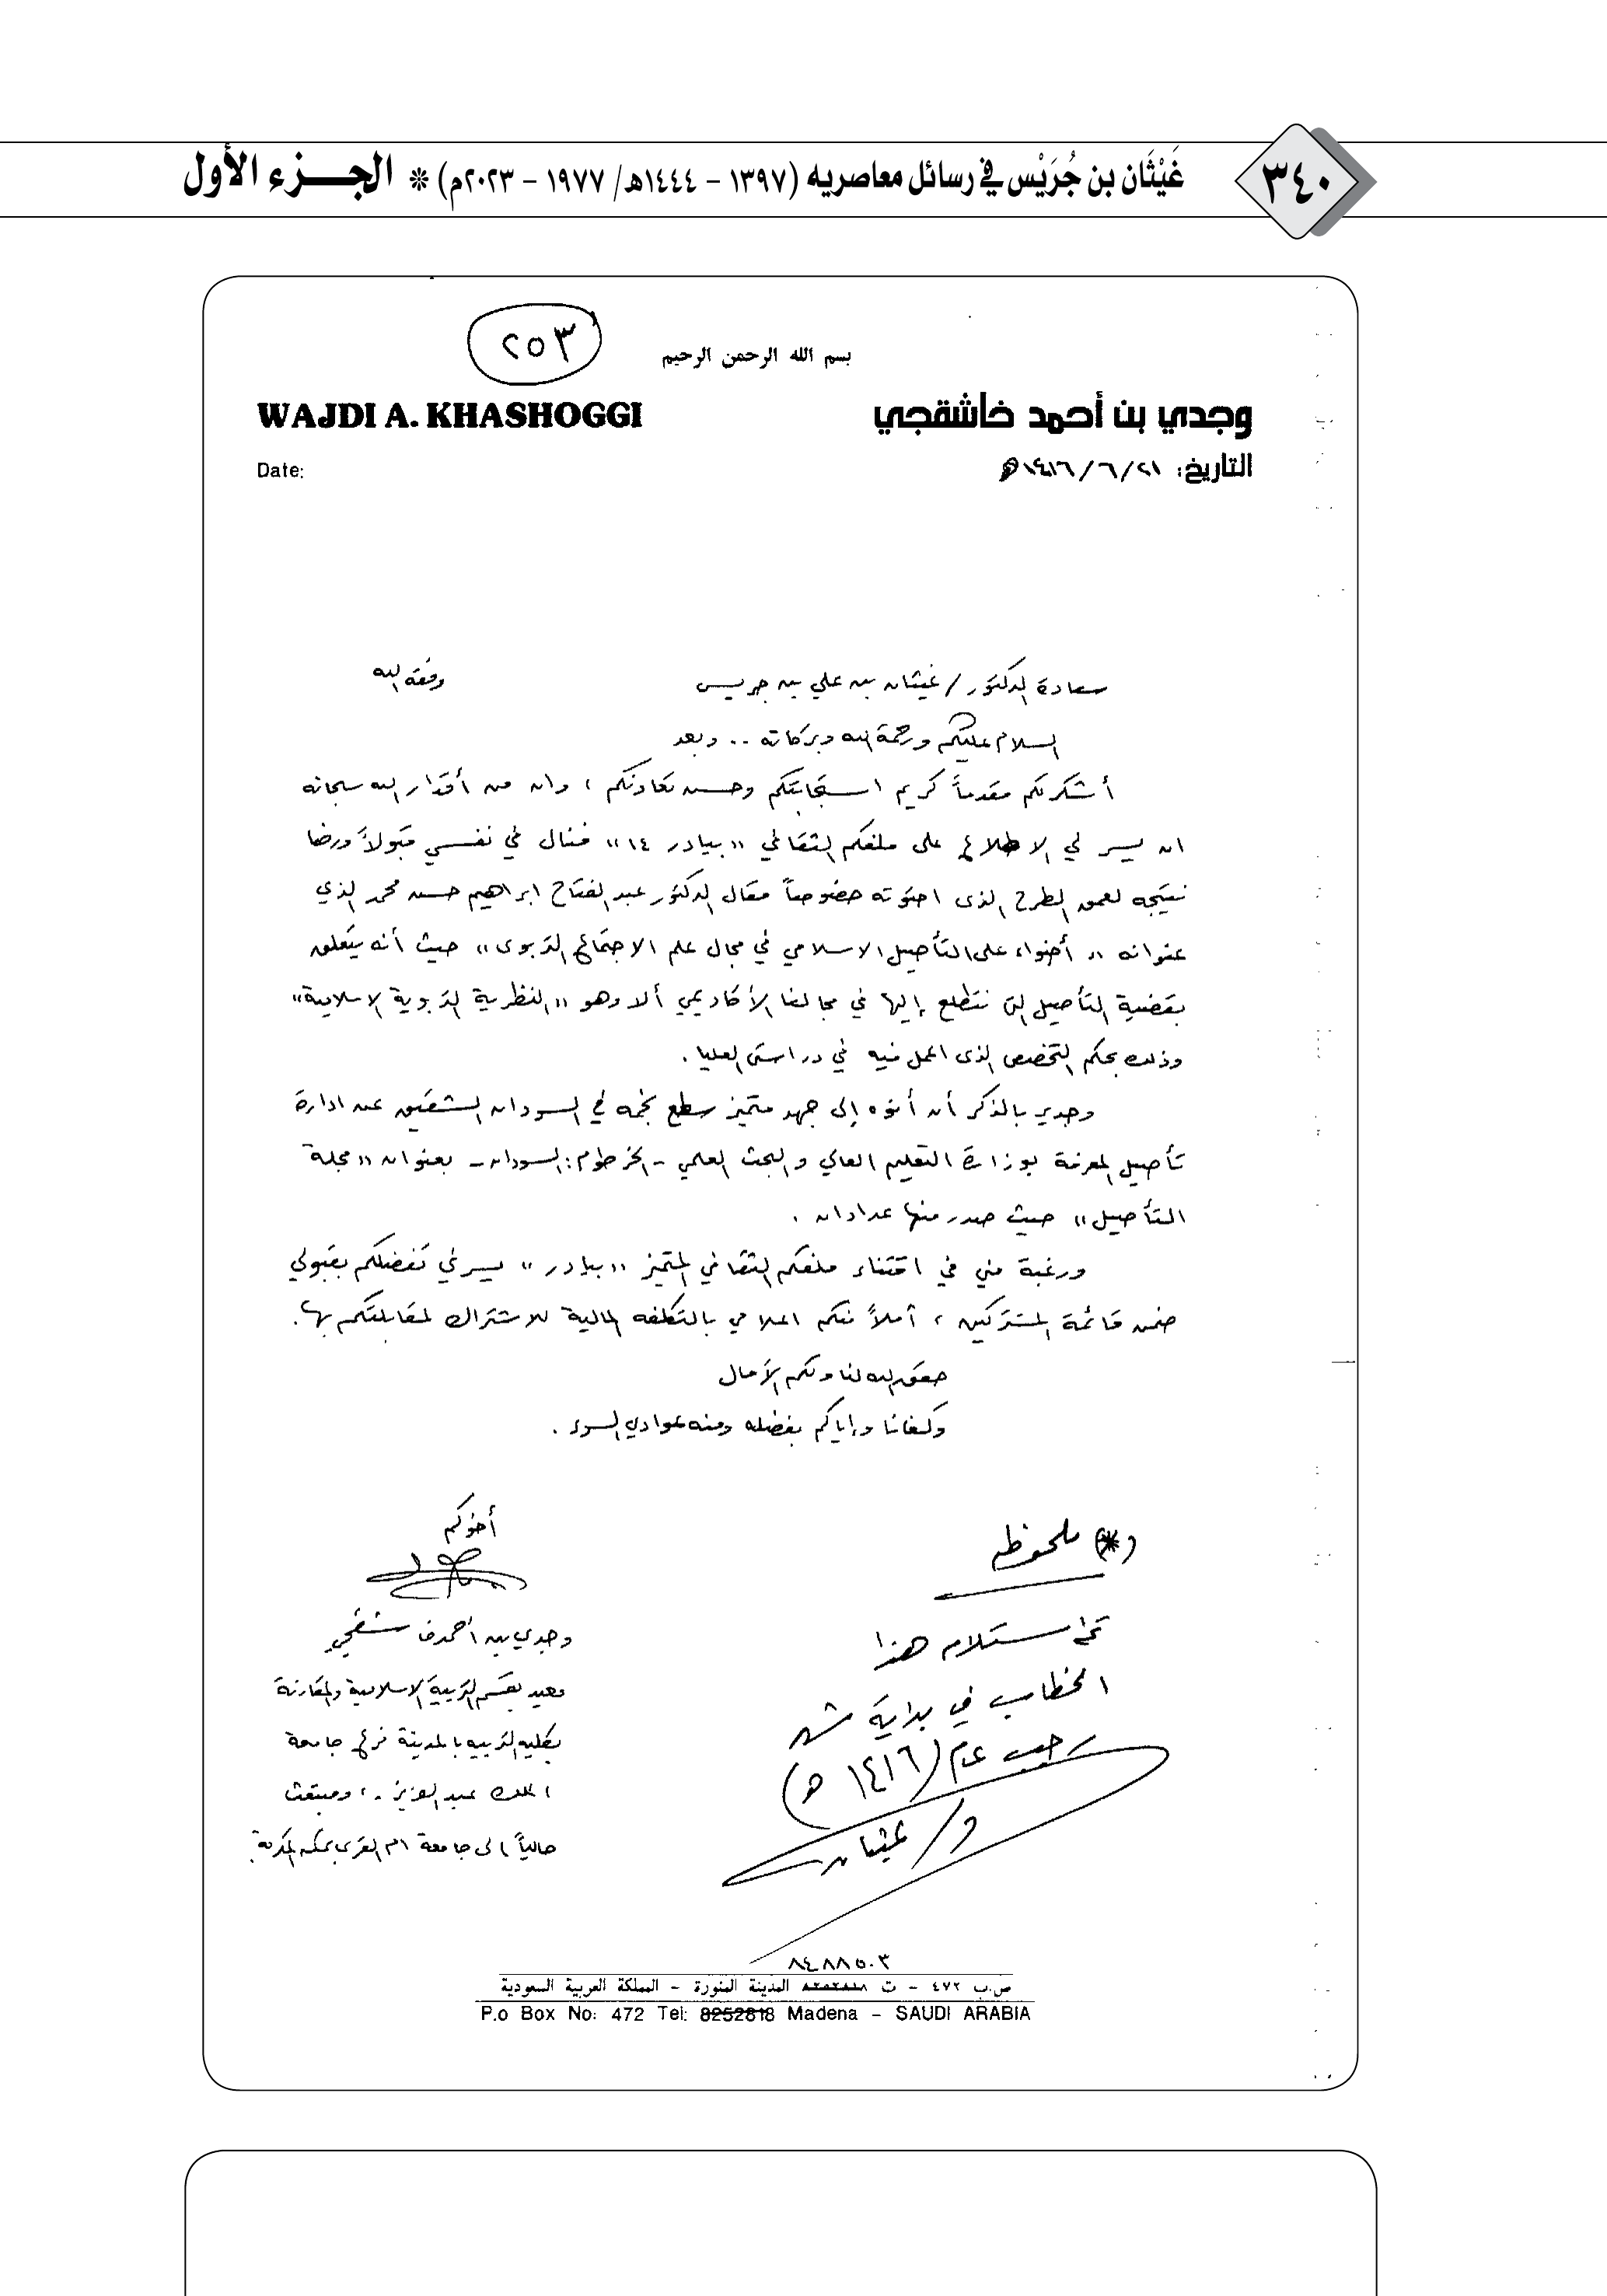 ٣٤٠
غَيْثَان بن جُرَيْس في رسائل معاصريه (١٣٩٧ - ١٤٤٤هـ/ ١٩٧٧ - ٢٠٢٣م) * الجـــزء الأول
٢٥٣
بسم الله الرحمن الرحيم
وجدي بن أحمد خاشقجي
WAJDI A. KHASHOGGI
التاريخ: ٢١/٦/١٤١٦هـ
Date:
سعادة الدكتور / غيثان بن علي بن جريس وفقه الله
السلام عليكم ورحمة الله وبركاته .. وبعد
أشكركم مقدماً كريم استجابتكم وحسن تعاونكم ، وان من أقدار الله سبحانه
ان يسر لي الاطلاع على ملفكم الثقافي "بيادر ١٤" فنال في نفسي قبولاً ورضا
نتيجه لعمق الطرح الذى احتوته خصوصاً مقال الدكتور عبد الفتاح ابراهيم حسن محمد الذي
عنوانه " أضواء على التأصيل الاسلامي في مجال علم الاجتماع التربوى " حيث أنه يتعلق
بقضية التأصيل التى نتطلع إليها في مجالنا الأكاديمي ألا وهو "النظرية التربوية الاسلامية"
وذلك بحكم التخصص الذى اعمل فيه في دراستى العليا .
وجدير بالذكر أن أنوه إلى جهد متميز سطع نجمه في السودان الشقيق عن ادارة
تأصيل المعرفة بوزارة التعليم العالي والبحث العلمي - الخرطوم : السودان - بعنوان "مجلة
التأصيل" حيث صدر منها عدادان .
ورغبة مني في اقتناء ملفكم الثقافي المتميز "بيادر" يسرني تفضلكم بقبولي
ضمن قائمة المشتركين ، آملاً منكم اعلامي بالتكلفه المالية للاشتراك لمقابلتكم بها .
حقق الله لنا ولكم الآمال
وكفانا وإياكم بفضله ومنه عوادي السوء .
أخوكم
وجدي بن أحمد خاشقجي
معيد بقسم التربية الاسلامية والمقارنة
بكليه التربيه بالمدينة فرع جامعة
الملك عبد العزيز - ، ومبتعث
حالياً الى جامعة ام القرى بمكه المكرمة .
(*) ملحوظه
تم استلام هذا
الخطاب في بداية شهر
رجب عام (١٤١٦ هـ)
د/ غيثان
٨٤٨٨٥٠٣
ص.ب ٤٧٢ - ت ٨٢٥٢٨١٨ المدينة المنورة - المملكة العربية السعودية
P.o Box No: 472 Tel: 8252818 Madena - SAUDI ARABIA